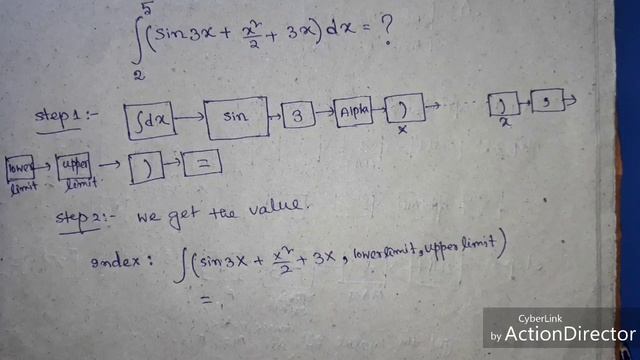 ∫₂⁵ (sin3x + x²/2 + 3x) dx = ?
step 1:- ∫dx → sin → 3 → Alpha → ) x → ... ) x → , →
lower limit → upper limit → ) → =
step 2:- we get the value.
Index: ∫(sin3x + x²/2 + 3x, lower limit, upper limit)
=
CyberLink
by ActionDirector